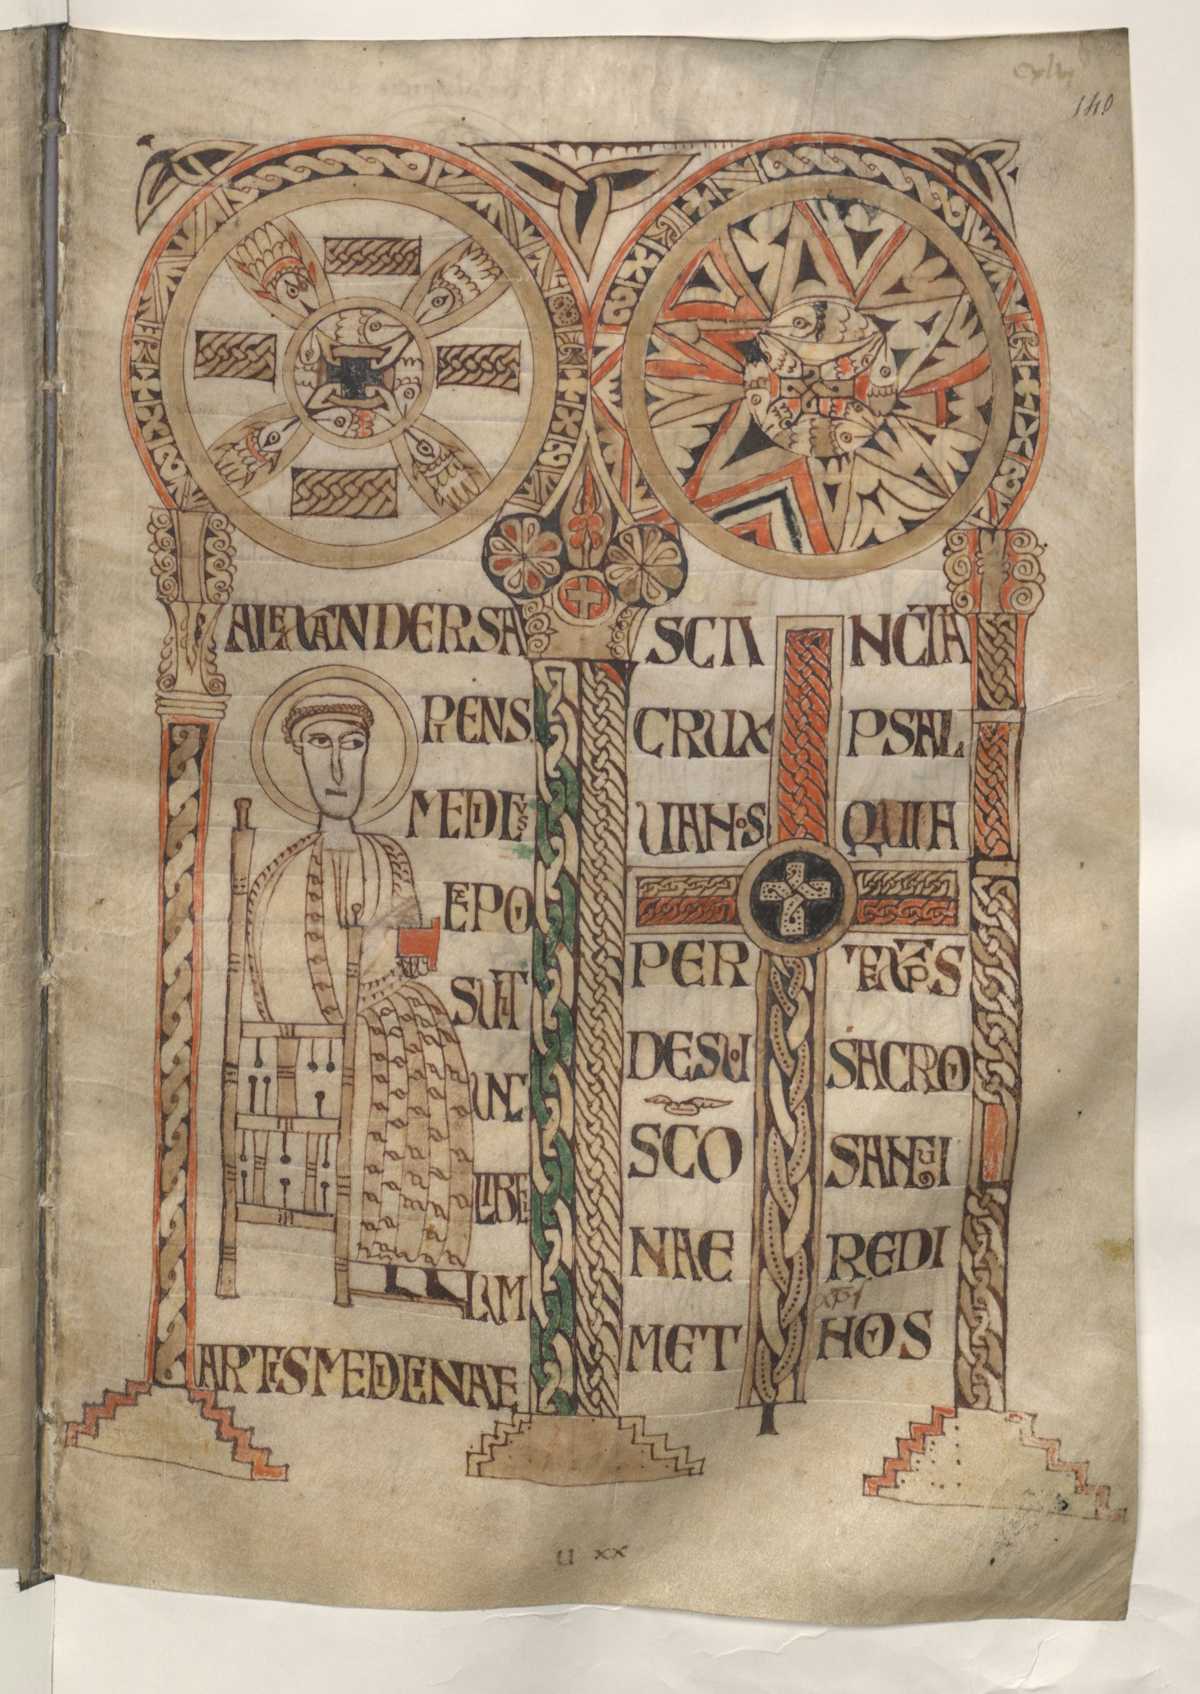 140
ALEXANDER SA
PIENS
MEDICUS
EXPO
SUIT
UNC
LIBEL
LUM
ARTIS MEDICINAE
SCA
CRUX
UAN·S
PER
DESU
SCO
NAE
MET
NCTA
PSAL
QUIA
SACRO
SANGUI
REDI
XPI
NOS
U XX